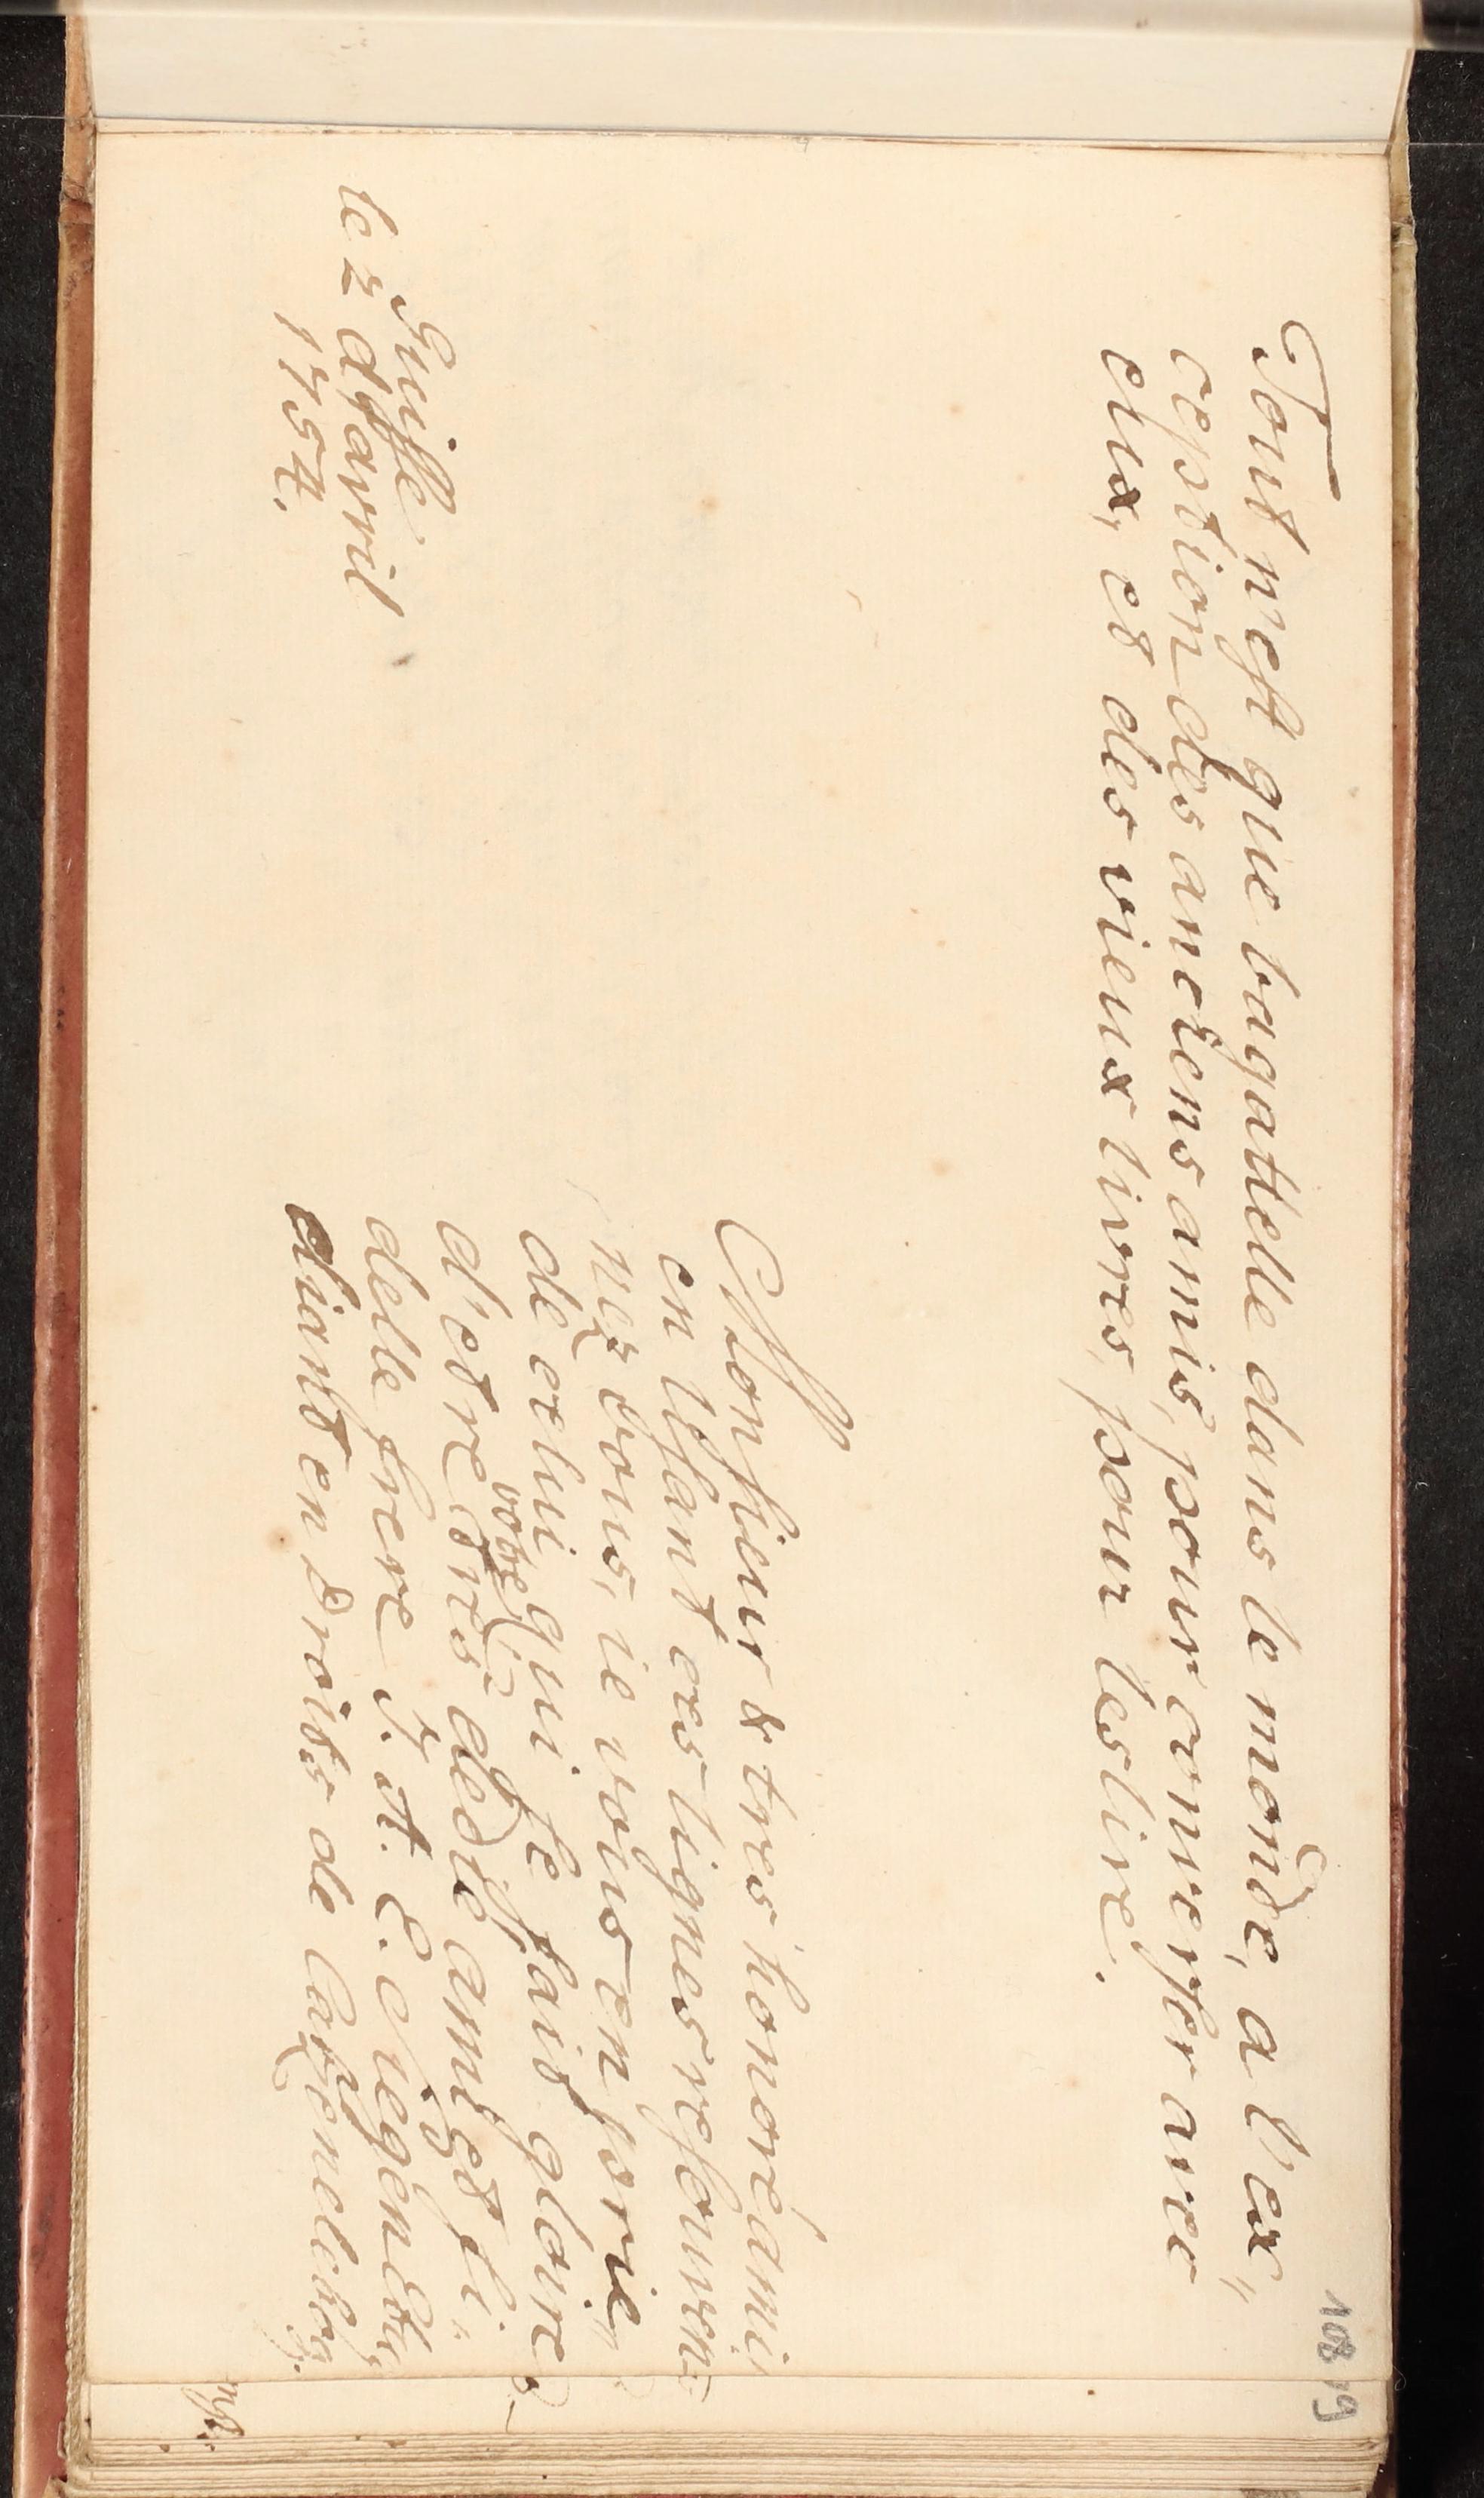 Tout n'est que bagattelle dans le monde, a l'ex„
ception des anciens amis, pour converser avec
eux, et des vieux livres, pour les lire.
Monsieur & tres honoré ami
en lisant ces lignes resouven=
nez vous, ie vous en prie,
de celui qui se fait gloire
d'etre votre tres dedié ami et fi„
delle frere J. A. E.
diant en droits de
le 2 d'avril
1754.
108